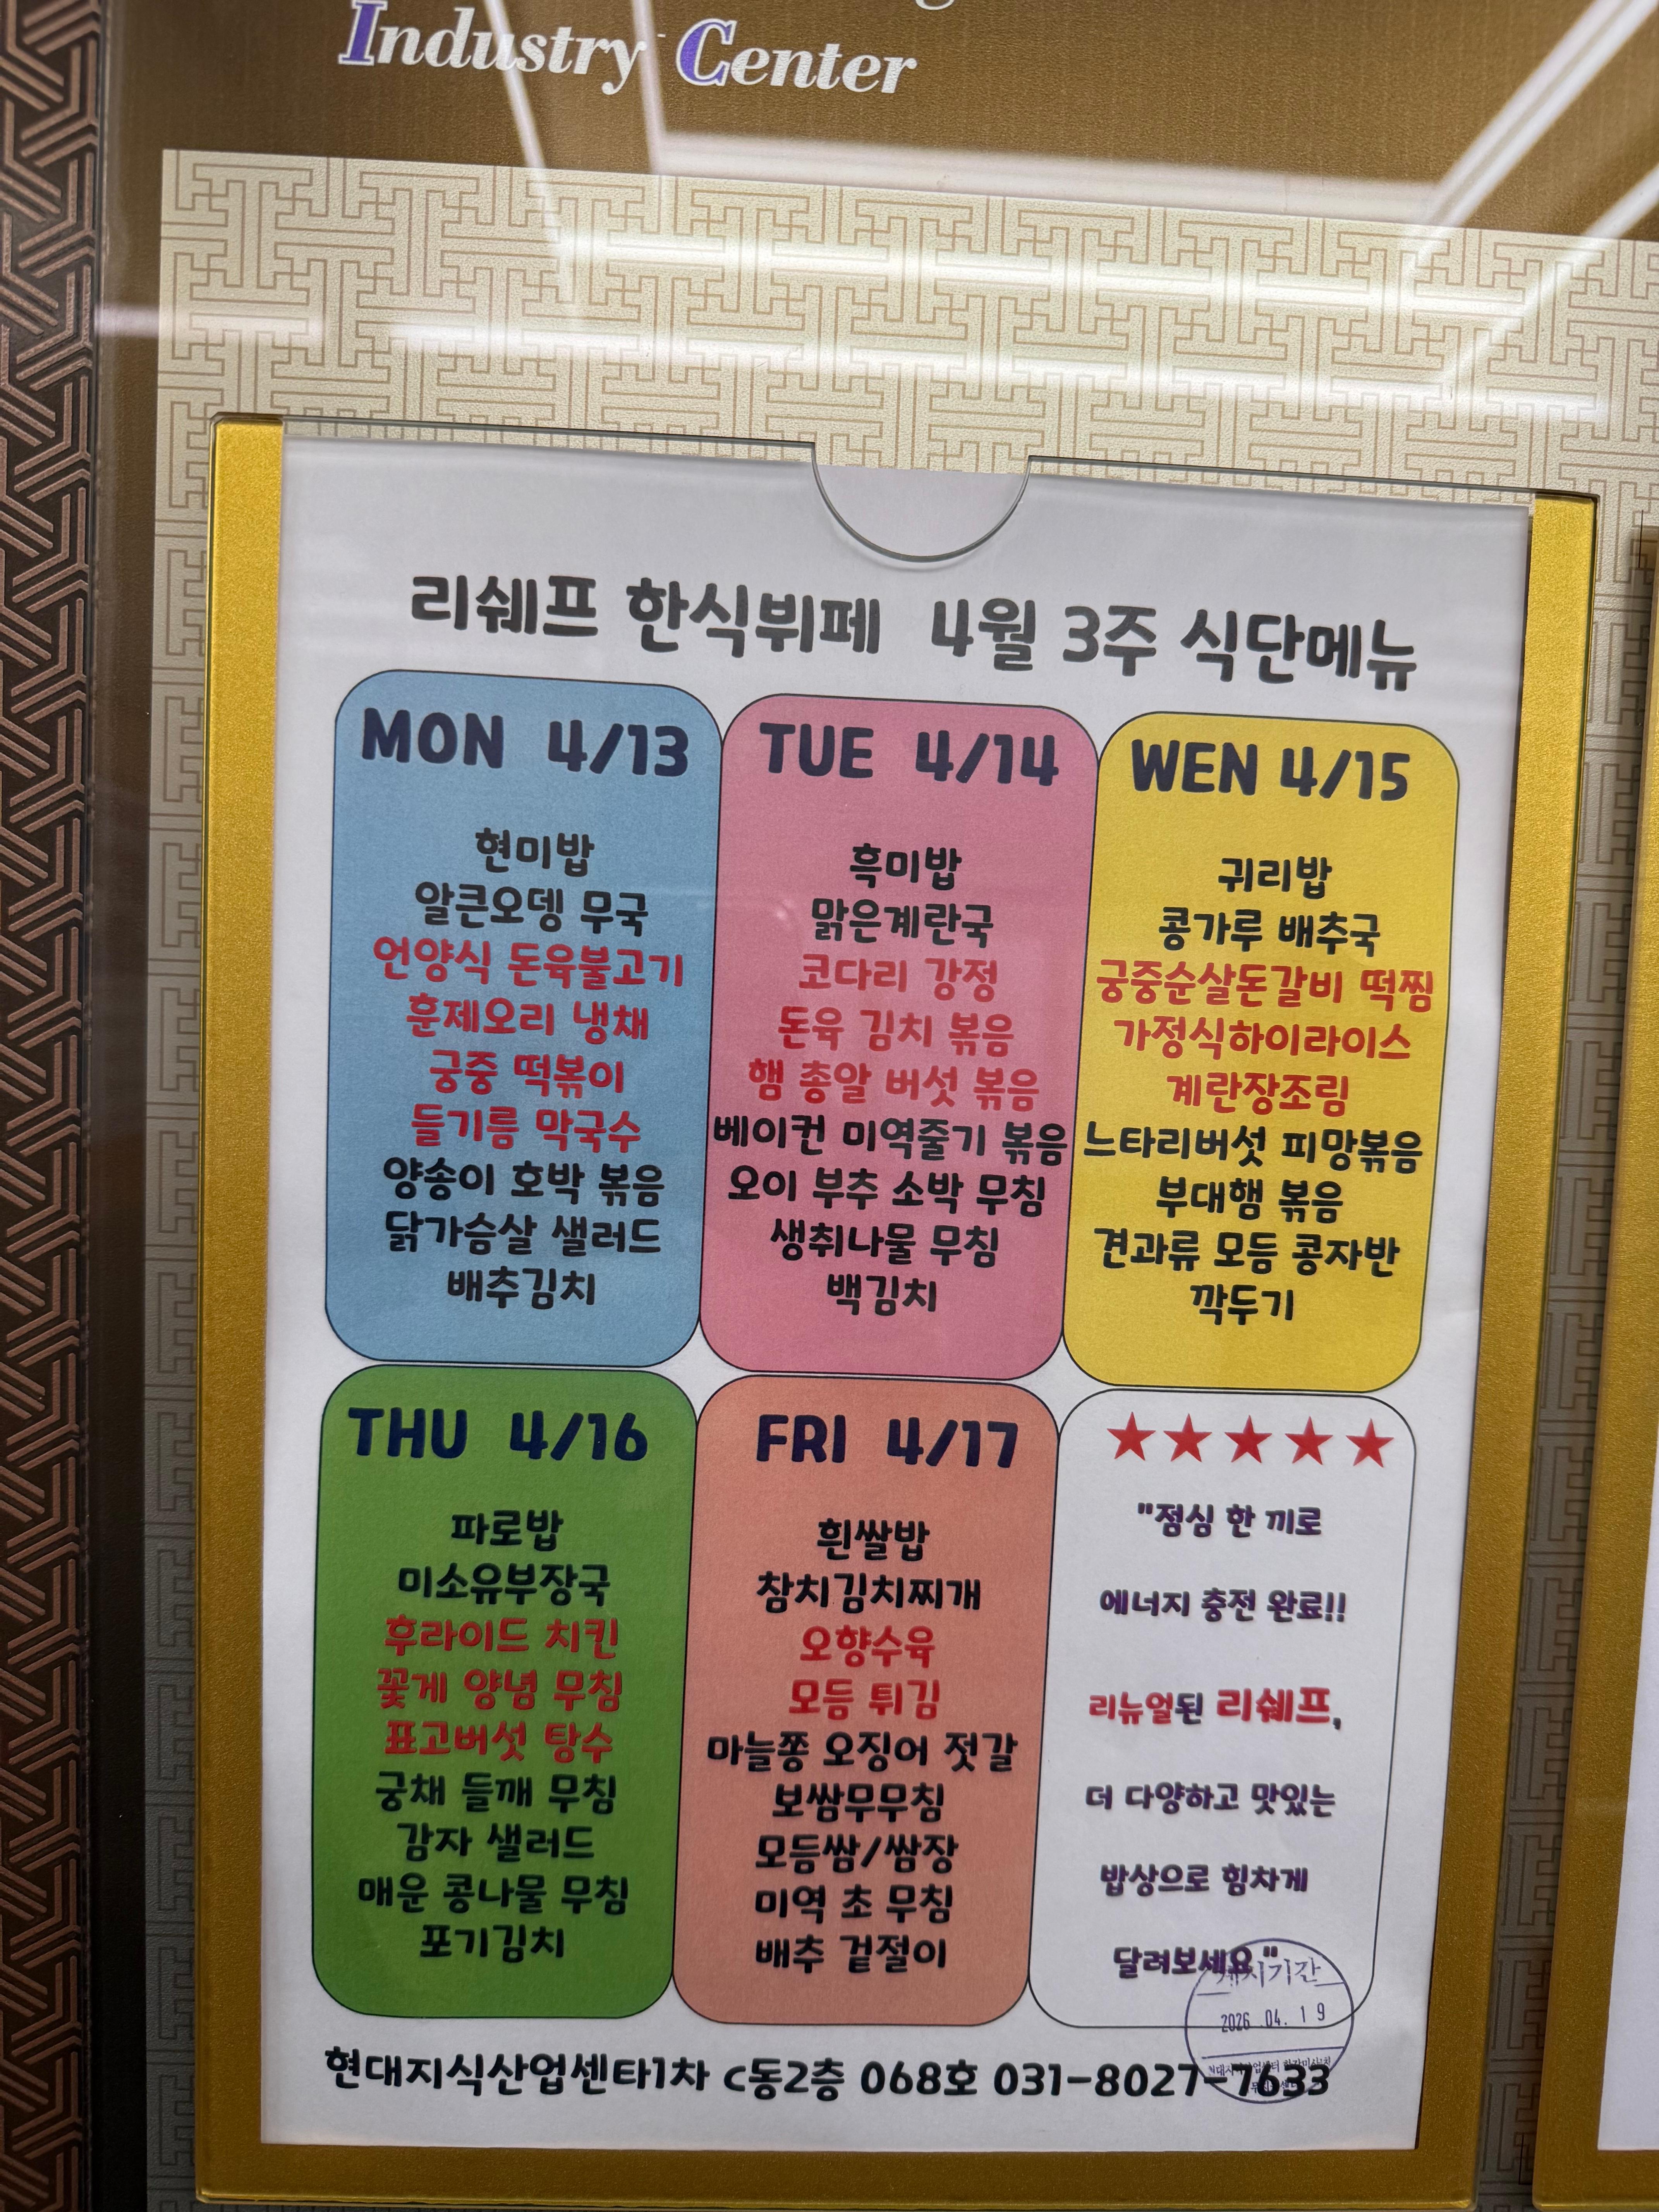 Industry Center
리쉐프 한식뷔페 4월 3주 식단메뉴
MON 4/13
현미밥
알큰오뎅 무국
언양식 돈육불고기
훈제오리 냉채
궁중 떡볶이
들기름 막국수
양송이 호박 볶음
닭가슴살 샐러드
배추김치
TUE 4/14
흑미밥
맑은계란국
코다리 강정
돈육 김치 볶음
햄 총알 버섯 볶음
베이컨 미역줄기 볶음
오이 부추 소박 무침
생취나물 무침
백김치
WEN 4/15
귀리밥
콩가루 배추국
궁중순살돈갈비 떡찜
가정식하이라이스
계란장조림
느타리버섯 피망볶음
부대햄 볶음
견과류 모듬 콩자반
깍두기
THU 4/16
파로밥
미소유부장국
후라이드 치킨
꽃게 양념 무침
표고버섯 탕수
궁채 들깨 무침
감자 샐러드
매운 콩나물 무침
포기김치
FRI 4/17
흰쌀밥
참치김치찌개
오향수육
모듬 튀김
마늘쫑 오징어 젓갈
보쌈무무침
모듬쌈/쌈장
미역 초 무침
배추 겉절이
★★★★★
"점심 한 끼로
에너지 충전 완료!!
리뉴얼된 리쉐프,
더 다양하고 맛있는
밥상으로 힘차게
달려보세요"
게시기간
2026 .04. 1 9
현대지식산업센타1차 C동2층 068호 031-8027-7633